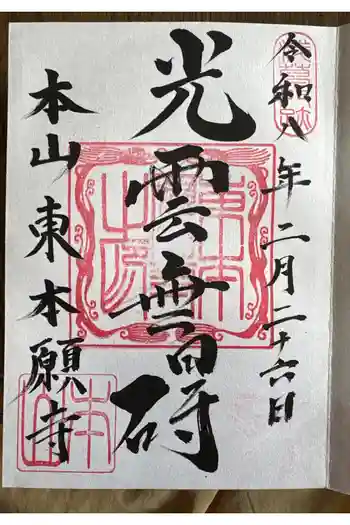 令和八年二月二十六日
光雲無碍
本山東本願寺